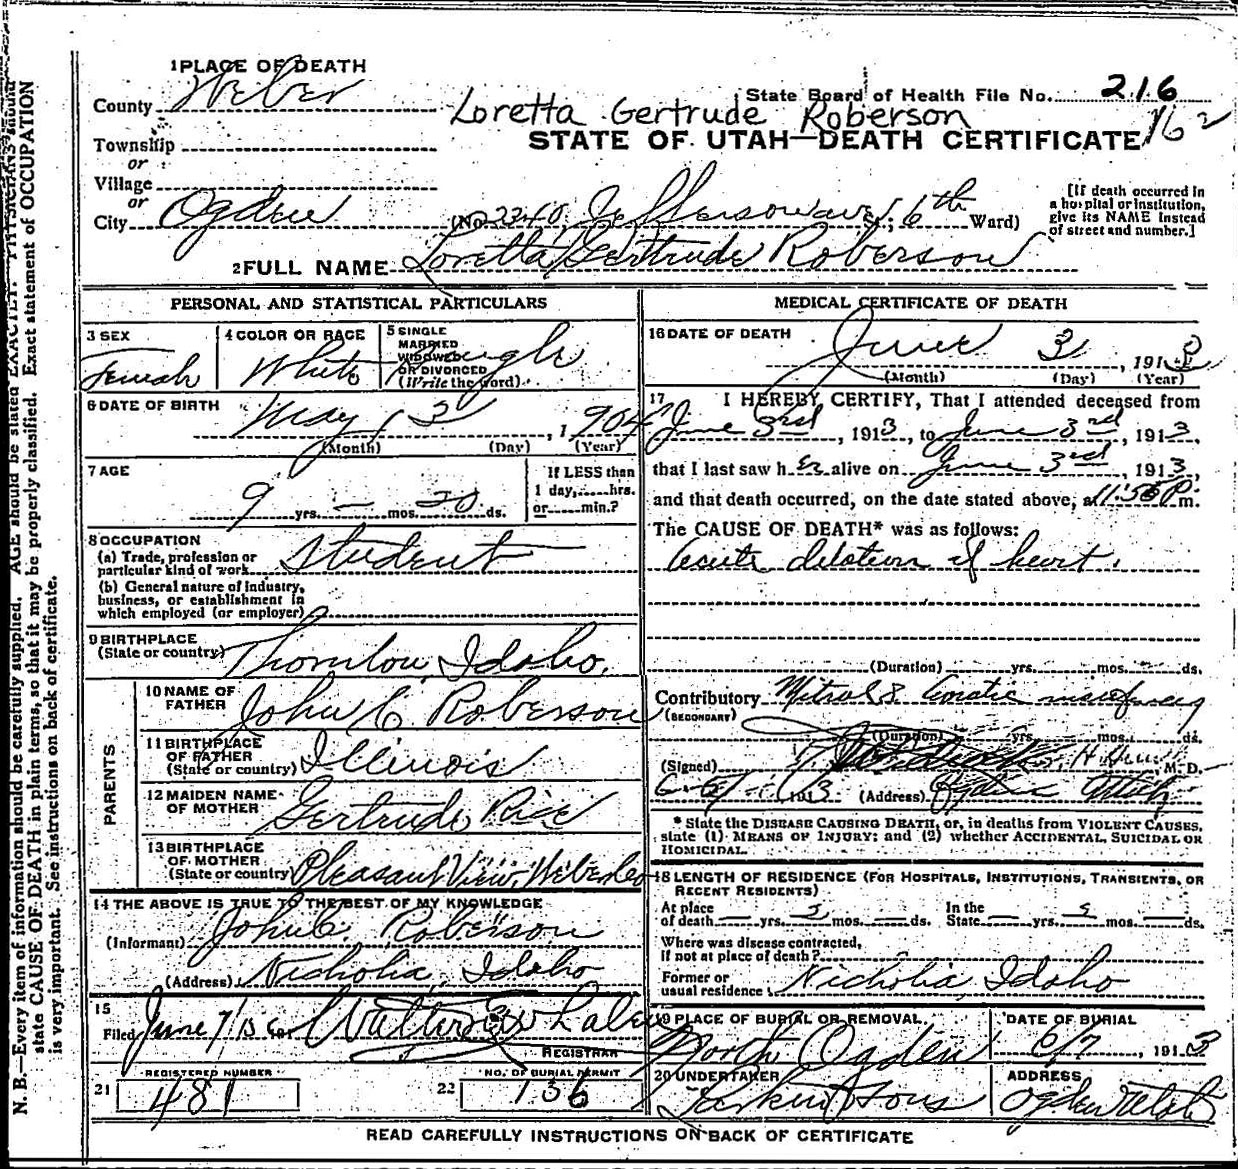 1 PLACE OF DEATH
County Weber
State Board of Health File No. 216
Loretta Gertrude Roberson
162
STATE OF UTAH—DEATH CERTIFICATE
Township
or
Village
or
City Ogden (No. 2240 Jefferson ave; 6th Ward)
[If death occurred in
a hospital or institution,
give its NAME instead
of street and number.]
2 FULL NAME Loretta Gertrude Roberson
PERSONAL AND STATISTICAL PARTICULARS
3 SEX
Female
4 COLOR OR RACE
White
5 SINGLE
MARRIED
WIDOWED
OR DIVORCED
(Write the word)
Single
6 DATE OF BIRTH
May 3, 1904
(Month) (Day) (Year)
7 AGE
9 yrs. — mos. 30 ds.
If LESS than
1 day,......hrs.
or......min.?
8 OCCUPATION
(a) Trade, profession or
particular kind of work Student
(b) General nature of industry,
business, or establishment in
which employed (or employer)
9 BIRTHPLACE
(State or country) Thornton, Idaho.
PARENTS
10 NAME OF
FATHER John C Roberson
11 BIRTHPLACE
OF FATHER
(State or country) Illinois
12 MAIDEN NAME
OF MOTHER Gertrude Rice
13 BIRTHPLACE
OF MOTHER
(State or country) Pleasant View, Weber Co
14 THE ABOVE IS TRUE TO THE BEST OF MY KNOWLEDGE
(Informant) John C. Roberson
(Address) Nicholia, Idaho
15
Filed June 7/13 Walter
REGISTRAR
REGISTERED NUMBER
21 481
NO. OF BURIAL PERMIT
22 136
MEDICAL CERTIFICATE OF DEATH
16 DATE OF DEATH
June 3, 1913
(Month) (Day) (Year)
17 I HEREBY CERTIFY, That I attended deceased from
June 3rd, 1913, to June 3rd, 1913,
that I last saw her alive on June 3rd, 1913,
and that death occurred, on the date stated above, at 11:50 P m.
The CAUSE OF DEATH* was as follows:
Acute dilation of heart.
(Duration) yrs. mos. ds.
Contributory Mitral & Aortic
(SECONDARY)
(Duration) yrs. mos. ds.
(Signed) M. D.
1913 (Address) Ogden Utah
* State the DISEASE CAUSING DEATH, or, in deaths from VIOLENT CAUSES,
state (1) MEANS OF INJURY; and (2) whether ACCIDENTAL, SUICIDAL OR
HOMICIDAL.
18 LENGTH OF RESIDENCE (FOR HOSPITALS, INSTITUTIONS, TRANSIENTS, OR
RECENT RESIDENTS)
At place
of death — yrs. mos. — ds.
In the
State — yrs. mos. — ds.
Where was disease contracted,
if not at place of death?
Former or
usual residence Nicholia, Idaho
19 PLACE OF BURIAL OR REMOVAL
North Ogden
DATE OF BURIAL
6/7, 1913
20 UNDERTAKER
Larkin & Sons
ADDRESS
Ogden Utah
READ CAREFULLY INSTRUCTIONS ON BACK OF CERTIFICATE
N. B.—Every item of information should be carefully supplied. AGE should be stated EXACTLY. PHYSICIANS should
state CAUSE OF DEATH in plain terms, so that it may be properly classified. Exact statement of OCCUPATION
is very important. See instructions on back of certificate.